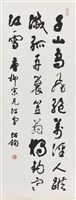 千山鳥飛絕萬徑人蹤
滅孤舟蓑笠翁獨釣寒
江雪 唐柳宗元江雪